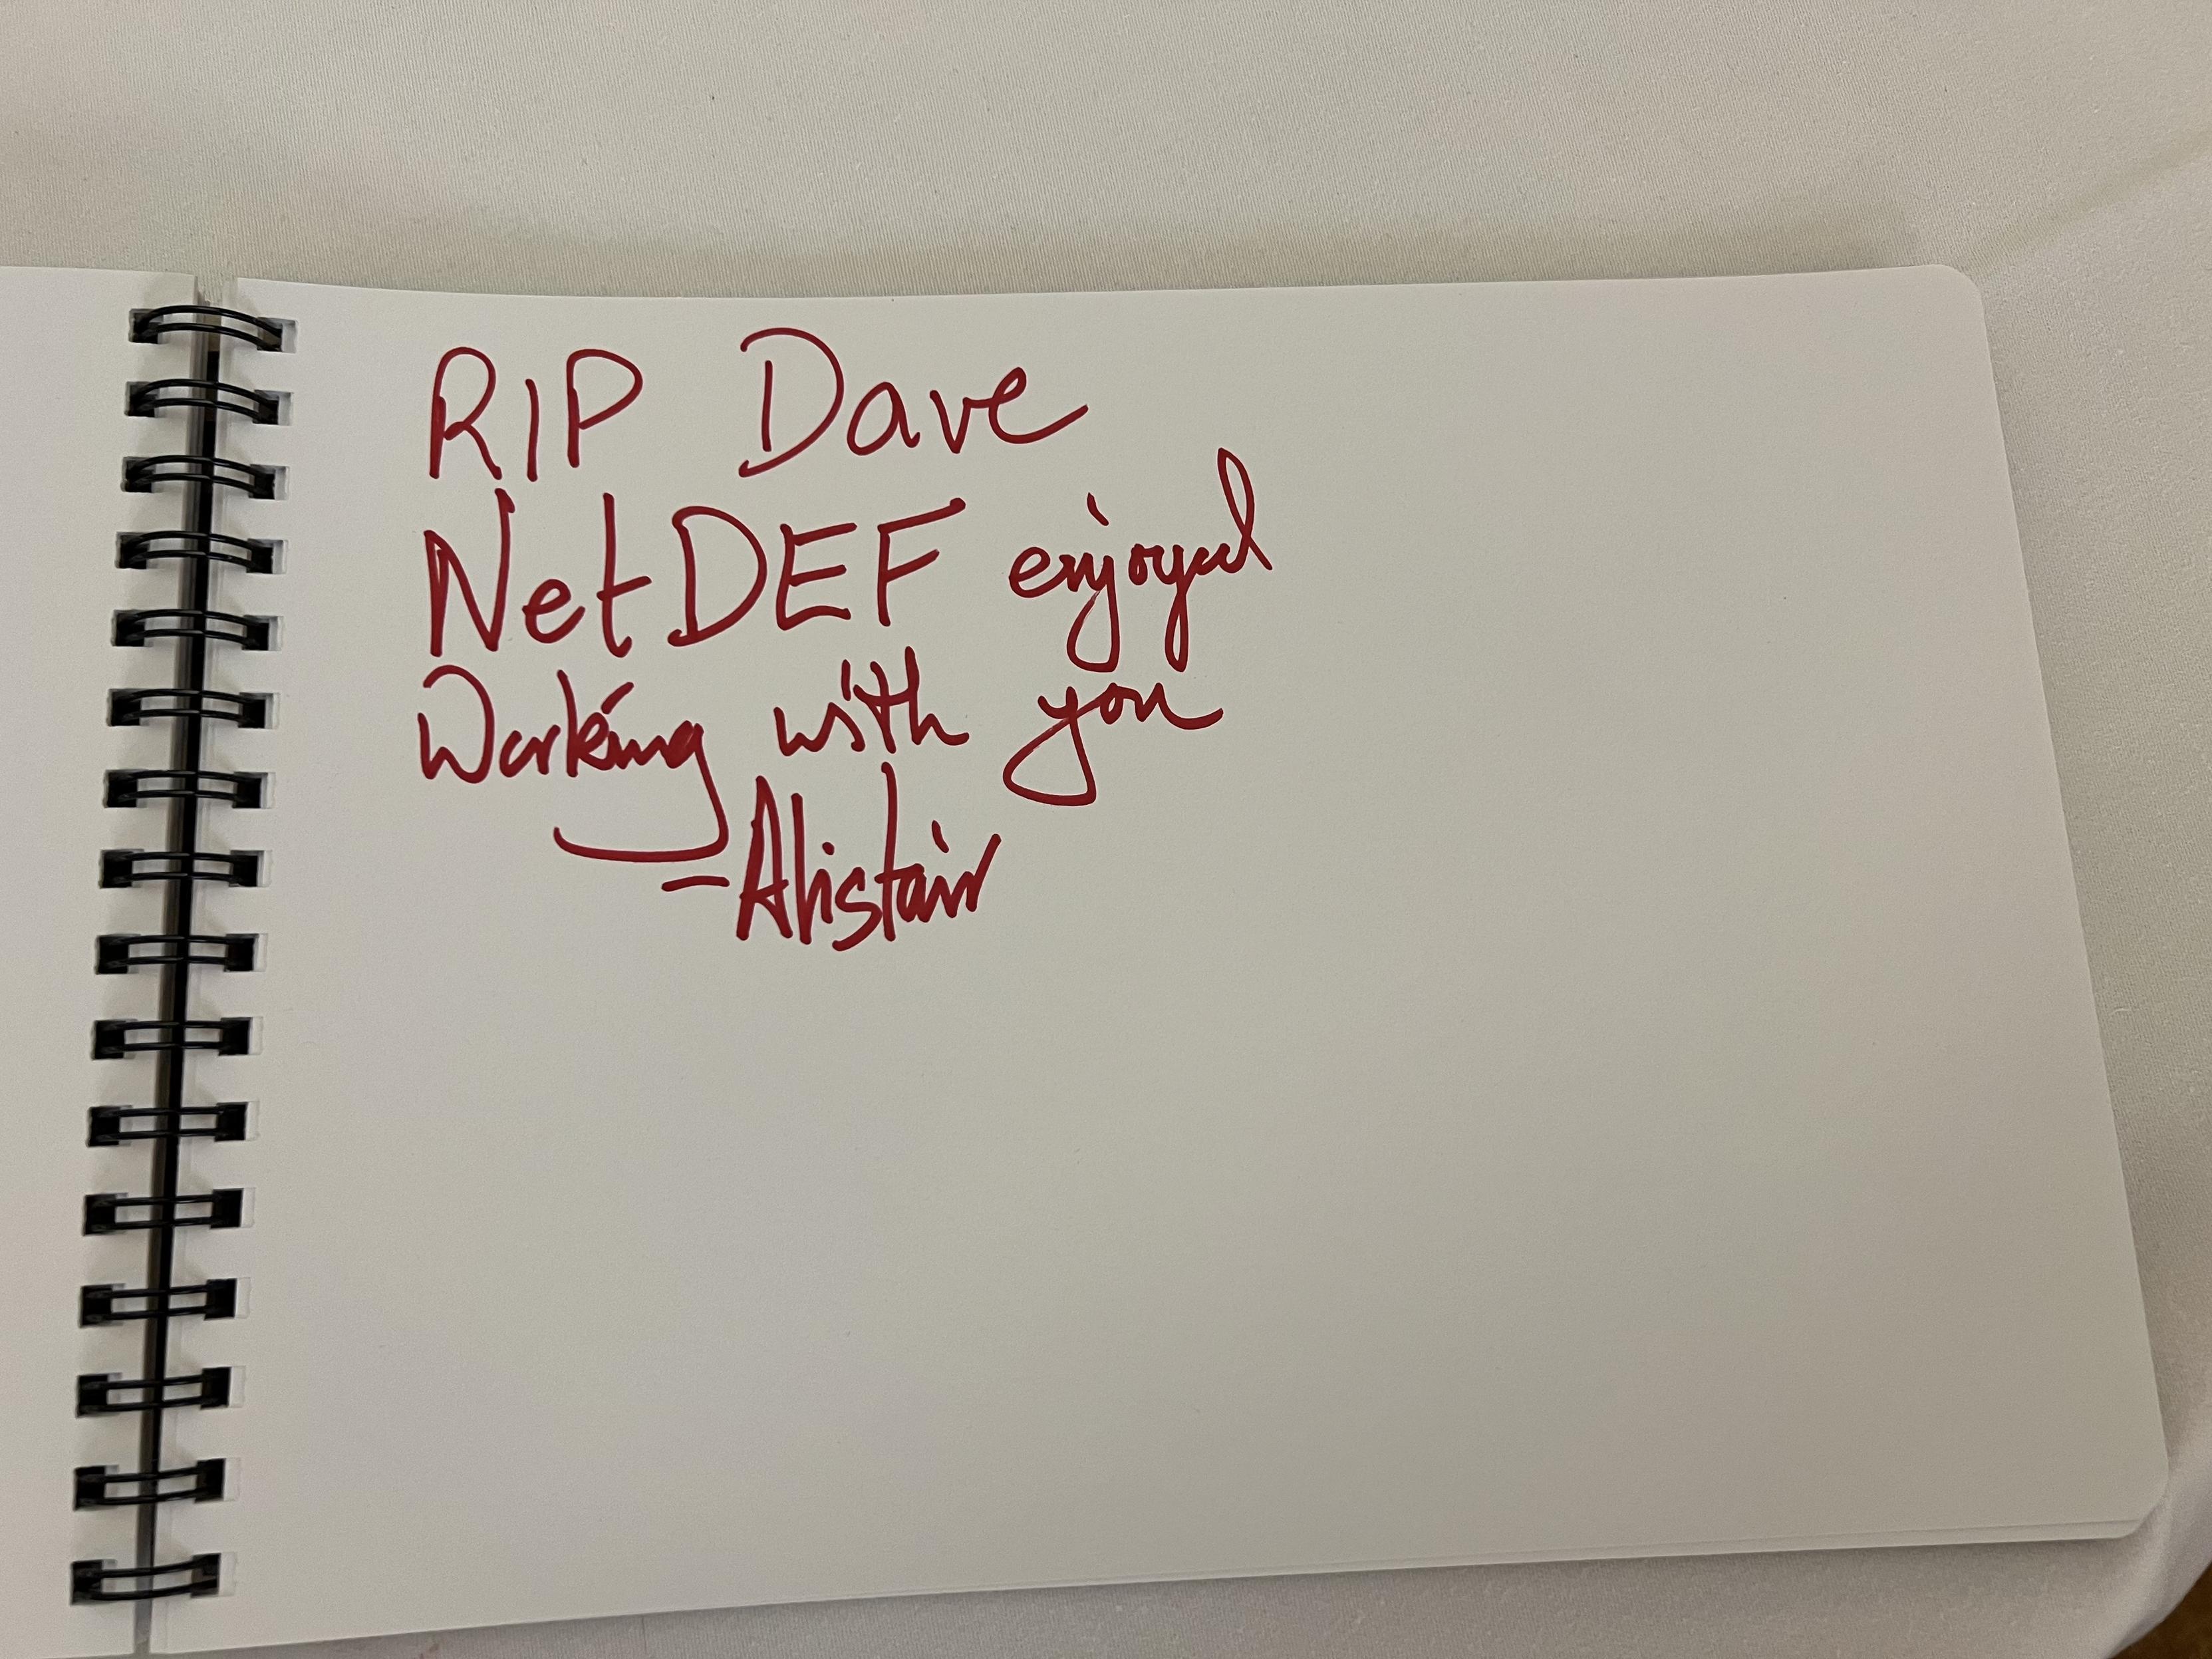 RIP Dave
NetDEF enjoyed
Working with you
- Alistair